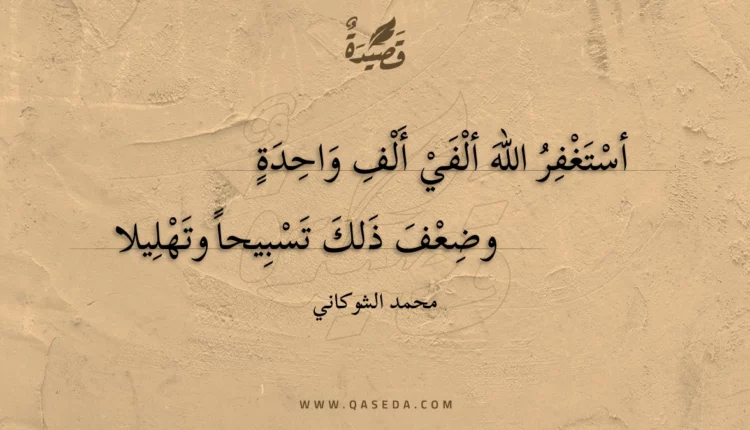 قَصِيدَةٌ
أسْتَغْفِرُ اللهَ ألْفَيْ أَلْفِ وَاحِدَةٍ
وضِعْفَ ذَلكَ تَسْبِيحاً وتَهْلِيلا
محمد الشوكاني
WWW.QASEDA.COM